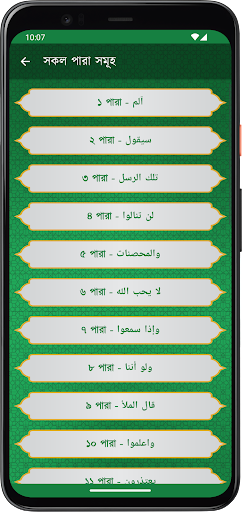 10:07
সকল পারা সমূহ
১ পারা - آلم
২ পারা - سيقول
৩ পারা - تلك الرسل
৪ পারা - لن تنالوا
৫ পারা - والمحصنات
৬ পারা - لا يحب الله
৭ পারা - وإذا سمعوا
৮ পারা - ولو أننا
৯ পারা - قال الملأ
১০ পারা - واعلموا
১১ পারা - يعتذرون